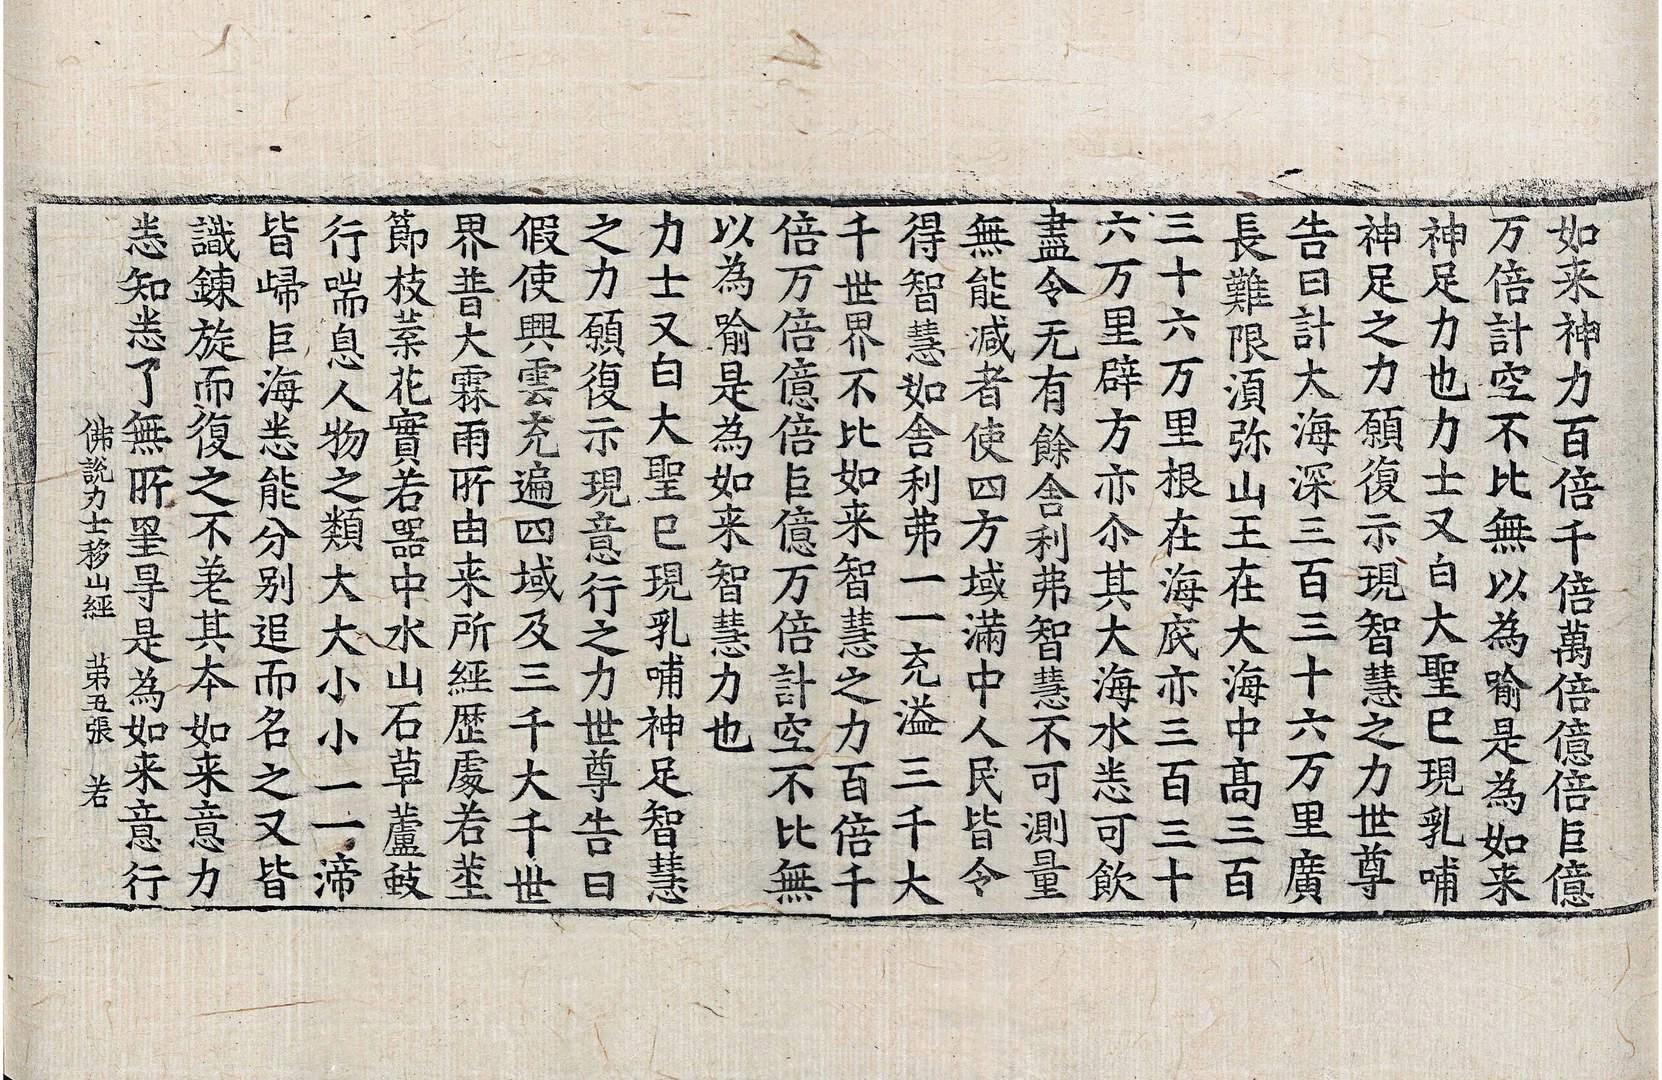 如来神力百倍千倍萬倍億倍巨億
万倍計空不比無以為喻是為如来
神足力也力士又白大聖巳現乳哺
神足之力願復示現智慧之力世尊
告曰計大海深三百三十六万里廣
長難限湏弥山王在大海中髙三百
三十六万里根在海底亦三百三十
六万里辟方亦尒其大海水悉可飲
盡令无有餘舍利弗智慧不可測量
無能减者使四方域滿中人民皆令
得智慧如舎利弗一一充溢三千大
千世界不比如来智慧之力百倍千
倍万倍億倍巨億万倍計空不比無
以為喻是為如来智慧力也
力士又白大聖巳現乳哺神足智慧
之力願復示現意行之力世尊告曰
假使興雲充遍四域及三千大千世
界普大霖雨所由来所經歴處若莖
節枝葉花實若器中水山石草蘆𦸩
行喘息人物之類大大小小一一諦
皆歸巨海悉能分别追而名之又皆
識錬旋而復之不差其本如来意力
悉知悉了無所罣㝵是為如来意行
佛說力士移山經 苐五張 若